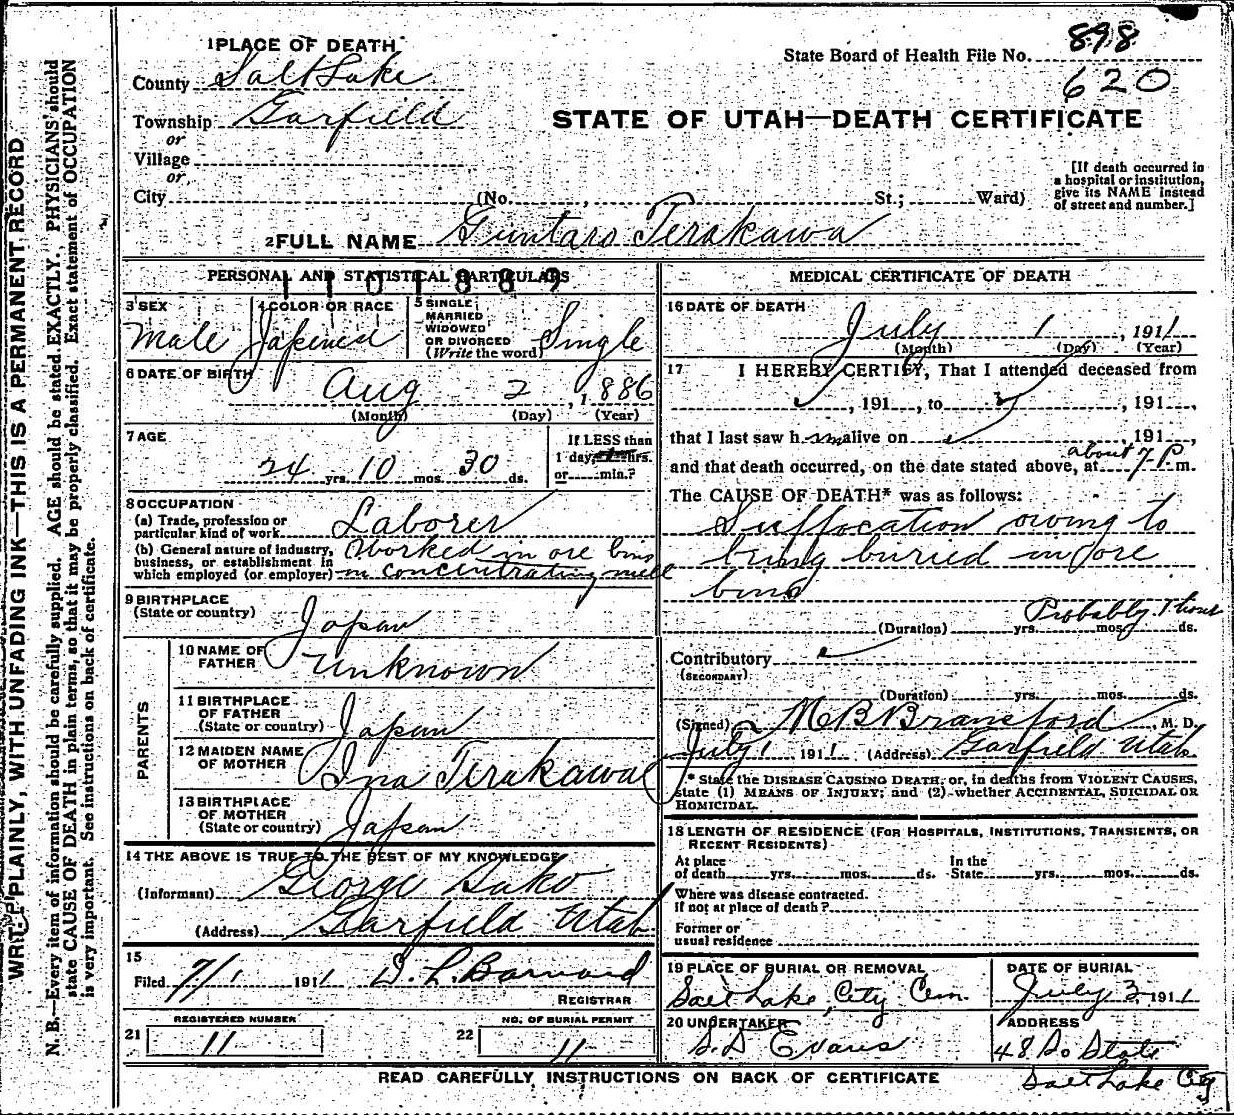 1 PLACE OF DEATH
County Salt Lake
Township Garfield
or
Village
or
City (No. , St.; Ward)
State Board of Health File No. 898
620
STATE OF UTAH—DEATH CERTIFICATE
[If death occurred in
a hospital or institution,
give its NAME instead
of street and number.]
2 FULL NAME Guntaro Terakawa
PERSONAL AND STATISTICAL PARTICULARS
1101889
3 SEX
Male
4 COLOR OR RACE
5 SINGLE
MARRIED
WIDOWED
OR DIVORCED
(Write the word) Single
6 DATE OF BIRTH
Aug 2, 1886
(Month) (Day) (Year)
7 AGE
24 yrs. 10 mos. 30 ds.
If LESS than
1 day, hrs.
or min.?
8 OCCUPATION
(a) Trade, profession or
particular kind of work Laborer
(b) General nature of industry,
business, or establishment in
which employed (or employer)
Worked in ore bins
in concentrating mill
9 BIRTHPLACE
(State or country) Japan
PARENTS
10 NAME OF
FATHER Unknown
11 BIRTHPLACE
OF FATHER
(State or country) Japan
12 MAIDEN NAME
OF MOTHER Ina Terakawa
13 BIRTHPLACE
OF MOTHER
(State or country) Japan
14 THE ABOVE IS TRUE TO THE BEST OF MY KNOWLEDGE
(Informant) George Sako
(Address) Garfield Utah
15
Filed 7/1 1911 S. L. Barnard
REGISTRAR
REGISTERED NUMBER
21 11
NO. OF BURIAL PERMIT
22 11
MEDICAL CERTIFICATE OF DEATH
16 DATE OF DEATH
July 1, 1911
(Month) (Day) (Year)
17 I HEREBY CERTIFY, That I attended deceased from
, 191 , to , 191 ,
that I last saw h im alive on , 191 ,
and that death occurred, on the date stated above, at about 7 P m.
The CAUSE OF DEATH* was as follows:
Suffocation owing to
being buried in ore
bins
Probably 1 hour
(Duration) yrs. mos. ds.
Contributory
(SECONDARY)
(Duration) yrs. mos. ds.
(Signed) M B Bransford, M. D.
July 1 1911 (Address) Garfield Utah
* State the DISEASE CAUSING DEATH, or, in deaths from VIOLENT CAUSES,
state (1) MEANS OF INJURY; and (2) whether ACCIDENTAL, SUICIDAL OR
HOMICIDAL.
18 LENGTH OF RESIDENCE (FOR HOSPITALS, INSTITUTIONS, TRANSIENTS, OR
RECENT RESIDENTS)
At place
of death yrs. mos. ds.
In the
State yrs. mos. ds.
Where was disease contracted.
If not at place of death?
Former or
usual residence
19 PLACE OF BURIAL OR REMOVAL
Salt Lake City Cem.
DATE OF BURIAL
July 3 1911
20 UNDERTAKER
S. D Evans
ADDRESS
48 So State
Salt Lake City
READ CAREFULLY INSTRUCTIONS ON BACK OF CERTIFICATE
WRITE PLAINLY, WITH UNFADING INK—THIS IS A PERMANENT RECORD
N. B.—Every item of information should be carefully supplied. AGE should be stated EXACTLY. PHYSICIANS should
state CAUSE OF DEATH in plain terms, so that it may be properly classified. Exact statement of OCCUPATION
is very important. See instructions on back of certificate.